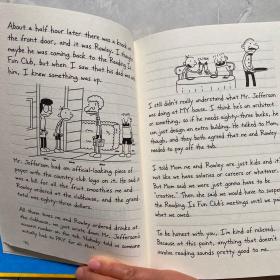 About a half hour later there was a knock at
the front door, and it was Rowley. I thought
maybe he was coming back to the Reading Is
Fun Club, but when I saw that his dad was with
him, I knew something was up.
Mr. Jefferson had an official-looking piece of
paper with the country club logo on it. He said it
was a bill for all the fruit smoothies me and
Rowley ordered at the clubhouse, and the grand
total was eighty-three dollars.
All those times me and Rowley ordered drinks at
the clubhouse, we just wrote down Mr. Jefferson's
account number on the tab. Nobody told us someone
would actually have to PAY for all that.
I still didn't really understand what Mr. Jefferson
was doing at MY house. I think he's an architect
or something, so if he needs eighty-three bucks, he
can just design an extra building. He talked to Mom,
though, and they both agreed that me and Rowley
needed to pay off the tab.
I told Mom me and Rowley are just kids and it's
not like we have salaries or careers or whatever.
But Mom said we were just gonna have to be
"creative." Then she said we would have to suspend
the Reading Is Fun Club's meetings until we paid
what we owed.
To be honest with you, I'm kind of relieved.
Because at this point, anything that doesn't
involve reading sounds pretty good to me.